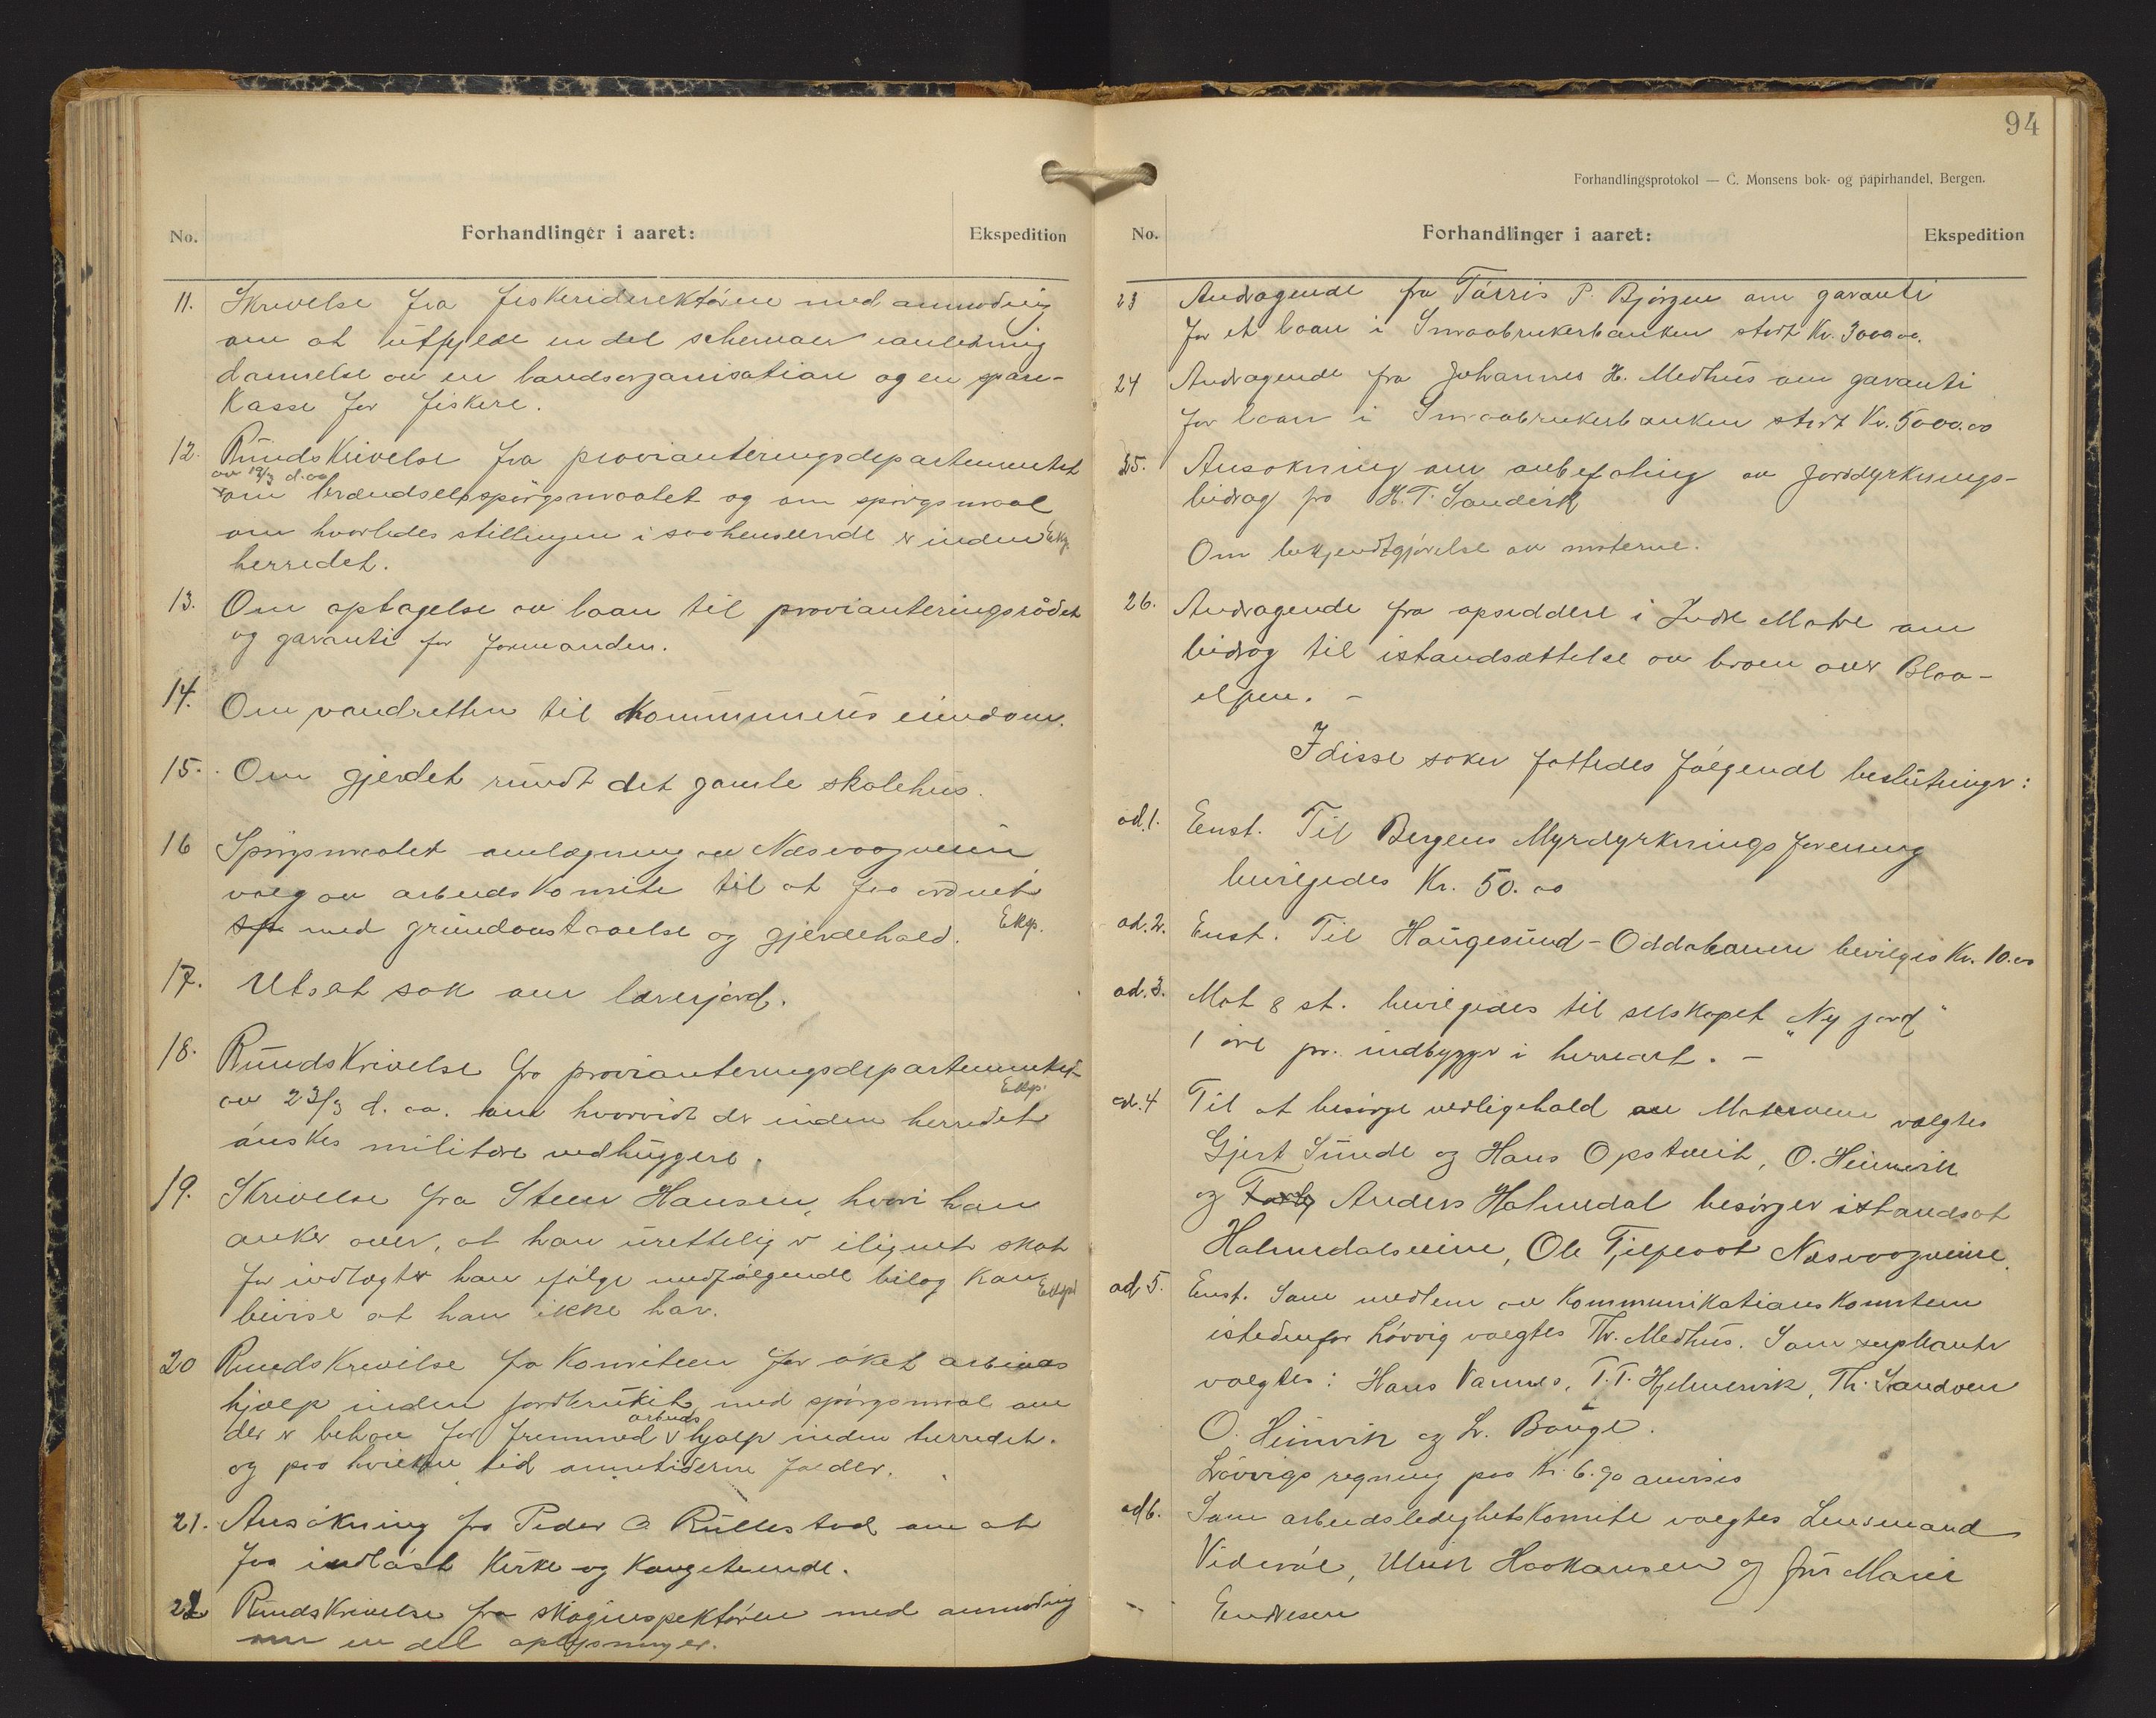 No.
Forhandlinger i aaret:
Ekspedition
11. Skrivelse fra fiskeridirektøren med anmodning
om at utfylde en del schemaer i anledning
dannelse av en landsorganisation og en spare-
kasse for fiskere.
12. Rundskrivelse fra provianteringsdepartementet
av 19/3 d. aa.
om brændselsspørgsmaalet og om spørgsmaal
om hvorledes stillingen i saahenseende er inden Eksp.
herredet.
13. Om optagelse av laan til provianteringsrådet
og garanti for formanden.
14. Om vandretten til kommunens eiendom.
15. Om gjerdet rundt det gamle skolehus.
16 Spørgsmaalet omlægning av Næsvaagveien
valg av arbeidskomite til at faa ordnet
med grundavstaaelse og gjerdehold. Eksp.
17. Utsat sak om lærerjord.
18. Rundskrivelse fra provianteringsdepartementet
Eksp.
av 23/3 d. aa. om hvorvidt der inden herredet
ønskes militære vedhuggere.
19. Skrivelse fra Steen Hansen, hvori han
anker over, at han urettelig er ilignet skat
for indtægter han ifølge medfølgende bilag kan Eksp.
bevise at han ikke har.
20 Rundskrivelse fra Komiteen for øket arbeids
hjælp inden jordbruket med spørgsmaal om
der er behov for fremmed arbeids hjælp inden herredet.
og paa hvilken tid anmeldes for der.
21. Ansøkning fra Peder O. Rullestad om at
faa indløst Kirke- og Kongetiende.
22 Rundskrivelse fra skoginspektøren med anmodning
om en del oplysninger.
94
Forhandlingsprotokol — C. Monsens bok- og papirhandel, Bergen.
No.
Forhandlinger i aaret:
Ekspedition
23 Andragende fra Tørris P. Bjørgen om garanti
for et laan i Smaabrukerbanken stort Kr. 3000.00.
24 Andragende fra Johannes H. Medhus om garanti
for laan i Smaabrukerbanken stort Kr. 5000.00
25. Ansøkning om anbefaling av jorddyrknings-
bidrag fra H. T. Sandvik
Om bekjendtgjørelse av møterne.
26. Andragende fra opsiddere i Indre Matre om
bidrag til istandsættelse av broen over Blaa-
elven. –
I disse saker fattedes følgende beslutninger:
ad. 1. Enst. Til Bergens Myrdyrkningsforening
bevilgedes Kr. 50.00
ad. 2. Enst. Til Haugesund - Oddabanen bevilges Kr. 10.00
ad. 3. Mot 8 st. bevilgedes til selskapet "Ny jord"
1 øre pr. indbygger i herredet. –
ad. 4 Til at besørge vedligehold av Matreveien valgtes
Gjert Sunde og Hans Opstveit, O. Heimvik
og Anders Holmedal besørger istandsat
Holmedalsveine, Ole Fjelpaat Næsvaagveine.
ad 5. Enst. Som medlem av Kommunikationskomiteen
istedenfor Løvvig valgtes Th. Medhus. Som suplanter
valgtes: Hans Vannes, T. T. Hjelmervik, Th. Sandven
O. Heimvik og L. Bauge.
Løvvigs regning paa Kr. 6.90 anvises
ad 6. Som arbeidsledighetskomite valgtes Lensmand
Viderøe, Ulrik Haakonsen og fru Marie
Endresen